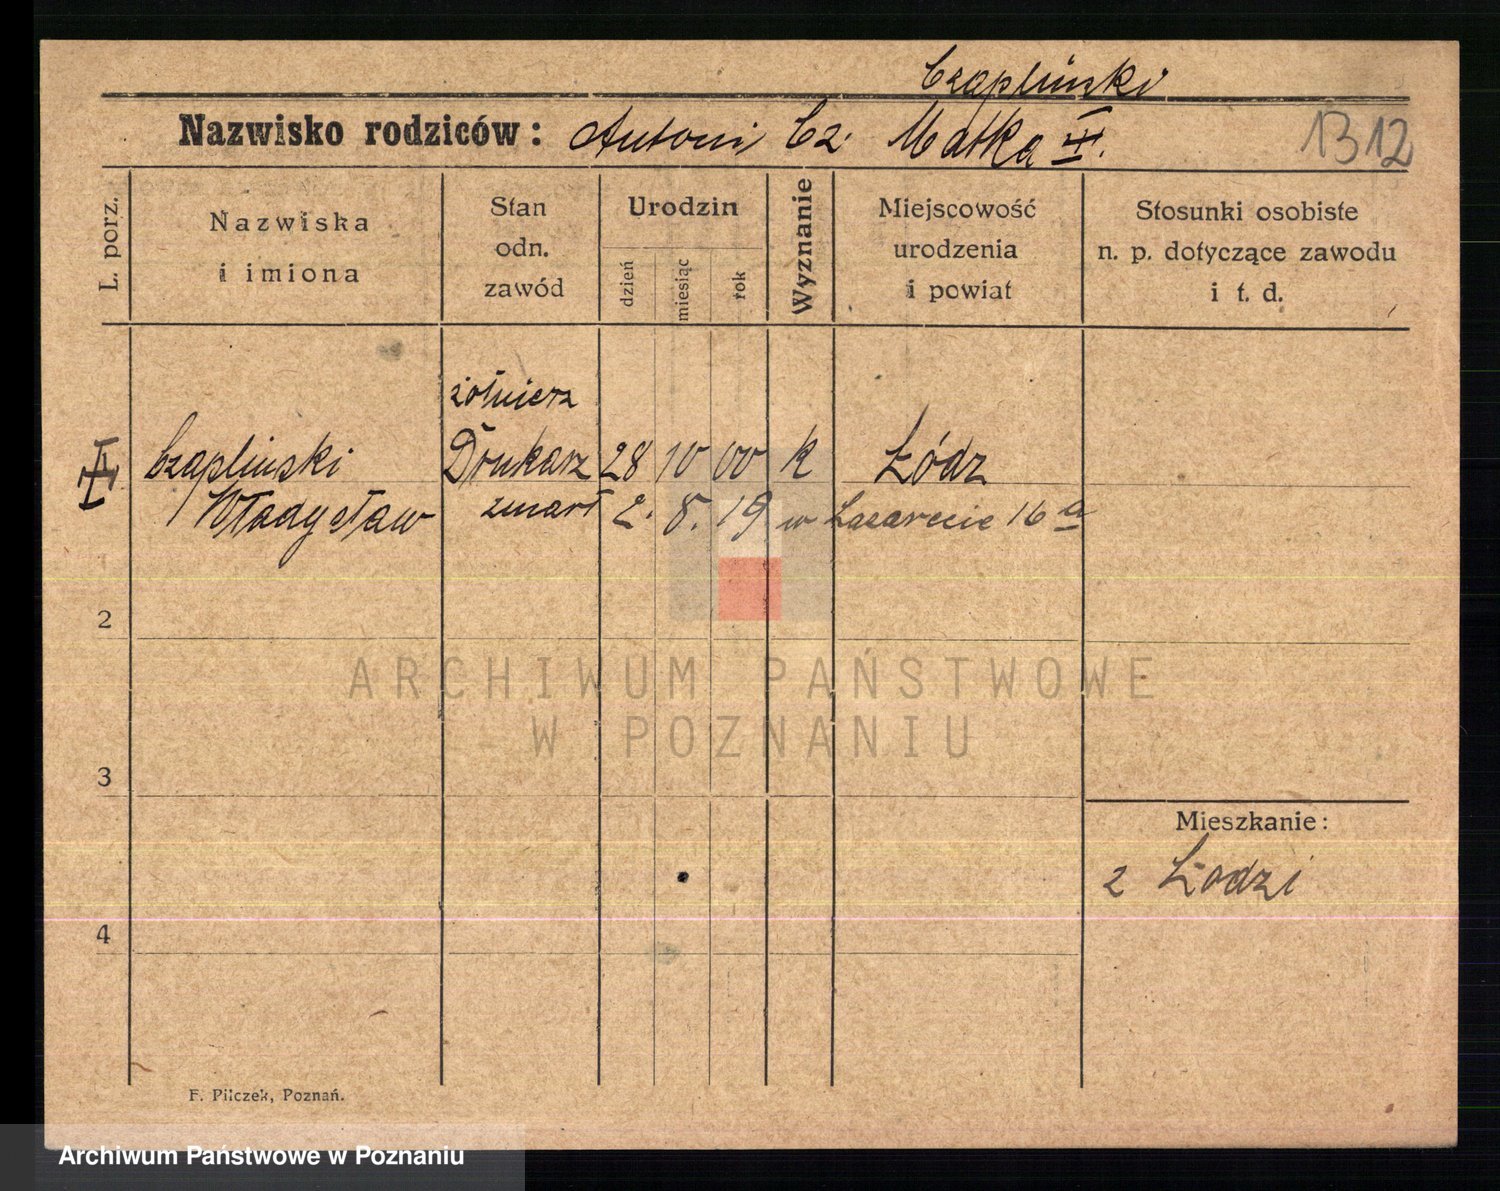 Czapliński
Nazwisko rodziców: Antoni Cz. Matka
1312
L. porz.
Nazwiska
i imiona
Stan
odn.
zawód
Urodzin
dzień
miesiąc
rok
Wyznanie
Miejscowość
urodzenia
i powiat
Stosunki osobiste
n. p. dotyczące zawodu
i t. d.
żołnierz
Czapliński Drukarz 28 10 00 k Łódz
Władysław zmarł 2. 8. 19 w Lazarecie 16 a
2
3
4
Mieszkanie:
z Łodzi
F. Pilczek, Poznań.
ARCHIWUM PAŃSTWOWE
W POZNANIU
Archiwum Państwowe w Poznaniu